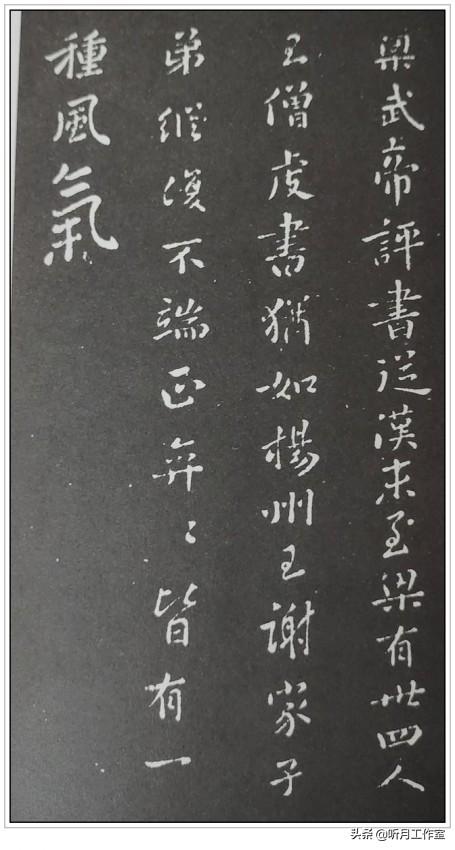 梁武帝評書從漢末至梁有卅四人
王僧虔書猶如楊州王謝家子
弟縱復不端正弈〻皆有一
種風氣
头条 @听月工作室